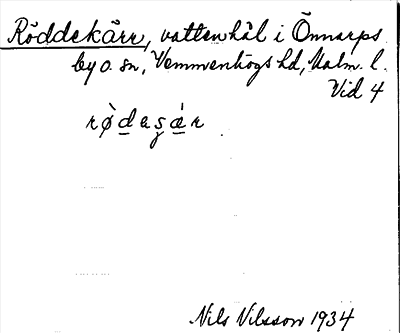 Röddekärr, vattenhål i Önnarps
by o. sn, Vemmenhögs hd, Malm. l.
Vid 4
Nils Nilsson 1934